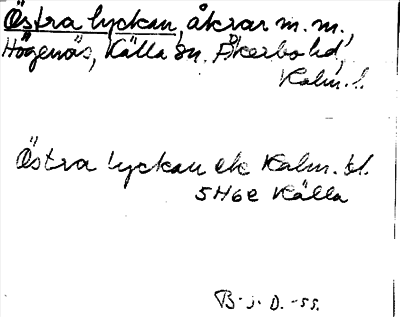 Östra lyckan, åkrar m.m.,
Högenäs, Källa sn. Åkerbo hd,
Kalm. l.
Östra lyckan ek Kalm. bl.
5H6e Källa
B. j. D. -55.